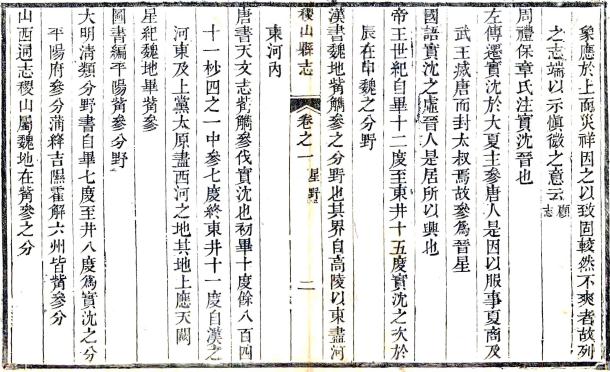 象應於上而災祥因之以致固較然不爽者故列
之志端以示愼徵之意云顧志
周禮保章氏注實沈晉也
左傳遷實沈於大夏主參唐人是因以服事夏商及
武王滅唐而封太叔焉故參爲晉星
國語實沈之虛晉人是居所以興也
帝王世紀自畢十二度至東井十五度實沈之次於
辰在申魏之分野
漢書魏地觜觿參之分野也其界自高陵以東盡河
東河內
稷山縣志
卷之一
星野
二
唐書天文志觜觿參伐實沈也初畢十度餘八百四
十一秒四之一中參七度終東井十一度自漢之
河東及上黨太原盡西河之地其地上應天闕
星紀魏地畢觜參
圖書編平陽觜參分野
大明清類分野書自畢七度至井八度爲實沈之分
平陽府參分蒲絳吉隰霍解六州皆觜參分
山西通志稷山屬魏地在觜參之分